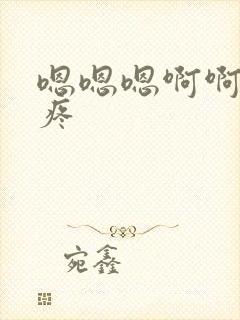 嗯嗯嗯啊啊
疼
宛鑫